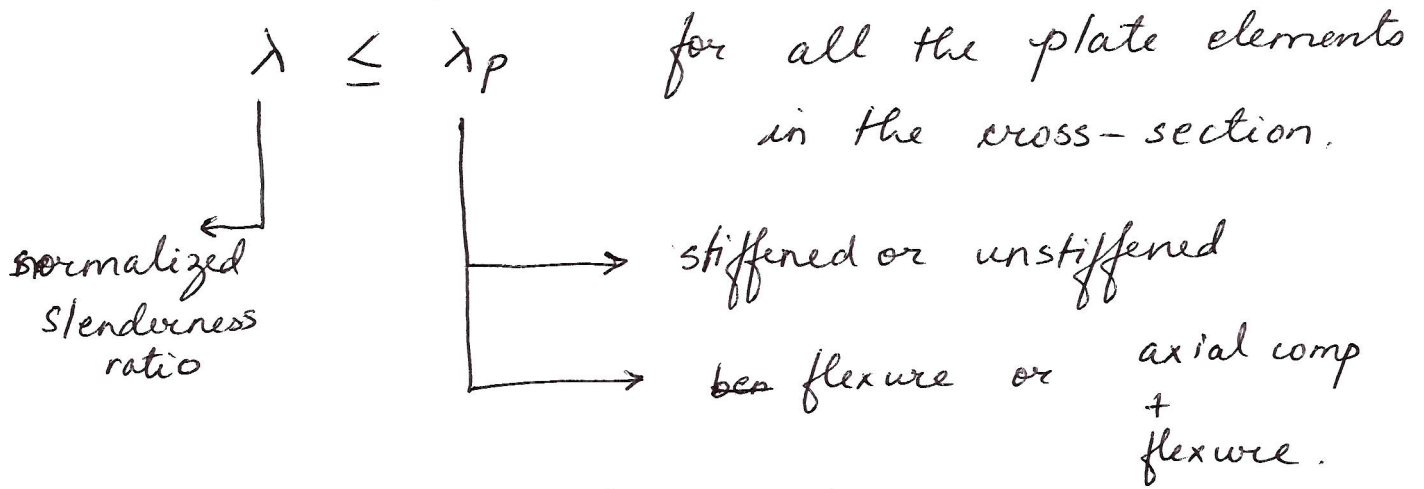 λ ≤ λp for all the plate elements
in the cross-section.
normalized
slenderness
ratio
stiffened or unstiffened
flexure or axial comp
+
flexure.